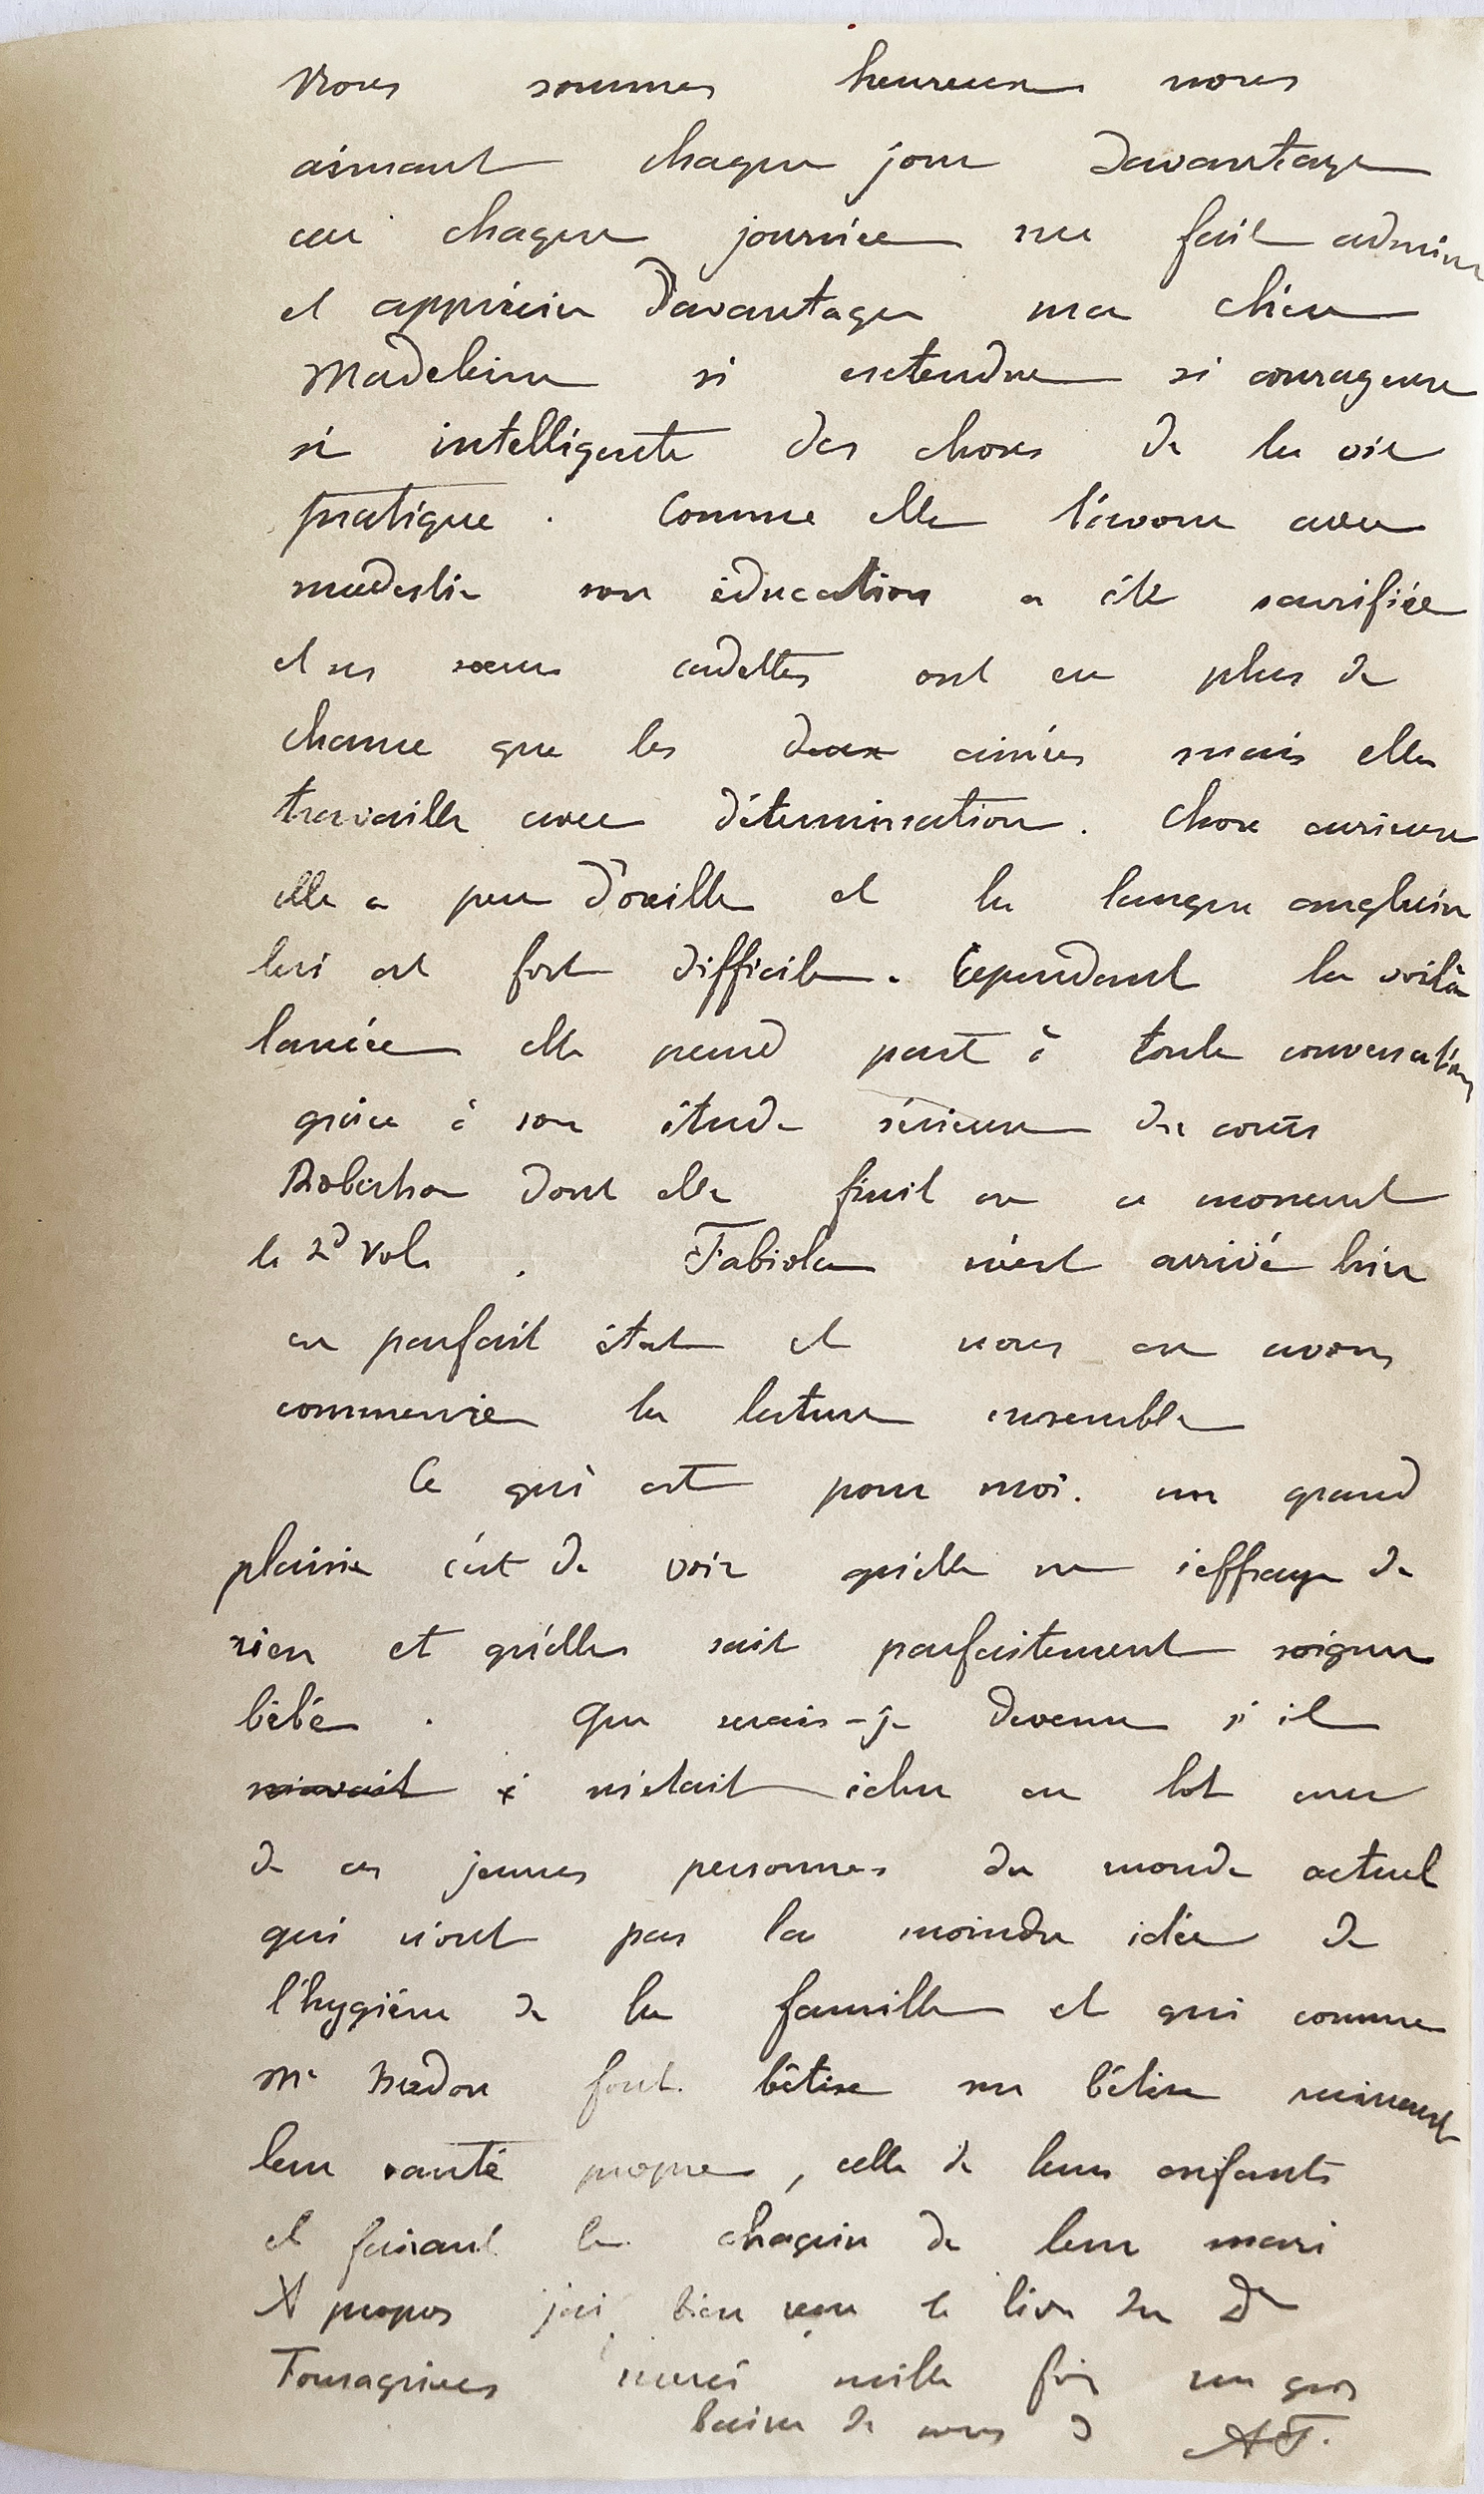 Nous sommes heureux nous
aimant chaque jour davantage
car chaque journée me fait admirer
et apprécier davantage ma chère
Madeleine si entendue si courageuse
si intelligente des choses de la vie
pratique. Comme elle l'avoue avec
modestie son éducation a été sacrifiée
et ses soeurs cadettes ont eu plus de
chance que les deux ainées mais elle
travaille avec détermination. Chose curieuse
elle a peu d'oreille et la langue anglaise
lui est fort difficile. Cependant la voilà
lancée elle prend part à toute conversation
grâce à son étude sérieuse du cours
Robertson dont elle finit en ce moment
le 2d vol. Fabiola m'est arrivé hier
en parfait état et nous en avons
commencé la lecture ensemble
Ce qui est pour moi un grand
plaisir c'est de voir qu'elle ne s'effraye de
rien et qu'elle sait parfaitement soigner
bébé. Que serais-je devenu s'il
m'avait m'était échu en lot une
de ces jeunes personnes du monde actuel
qui n'ont pas la moindre idée de
l'hygiène de la famille et qui comme
Me font bêtise sur bêtise ruinant
leur santé propre, celle de leurs enfants
et faisant le chagrin de leur mari
A propos j'ai bien reçu le livre du Dr
Fonsagrives merci mille fois un gros
baiser de nous 3 AF.